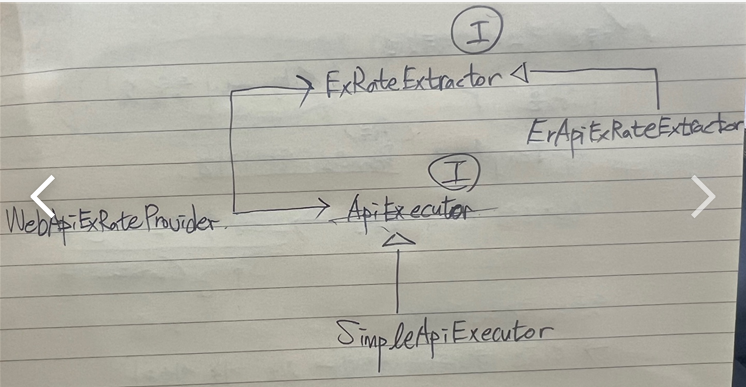 I
ExRateExtractor
ErApiExRateExtractor
I
WebApiExRateProvider
ApiExecutor
SimpleApiExecutor